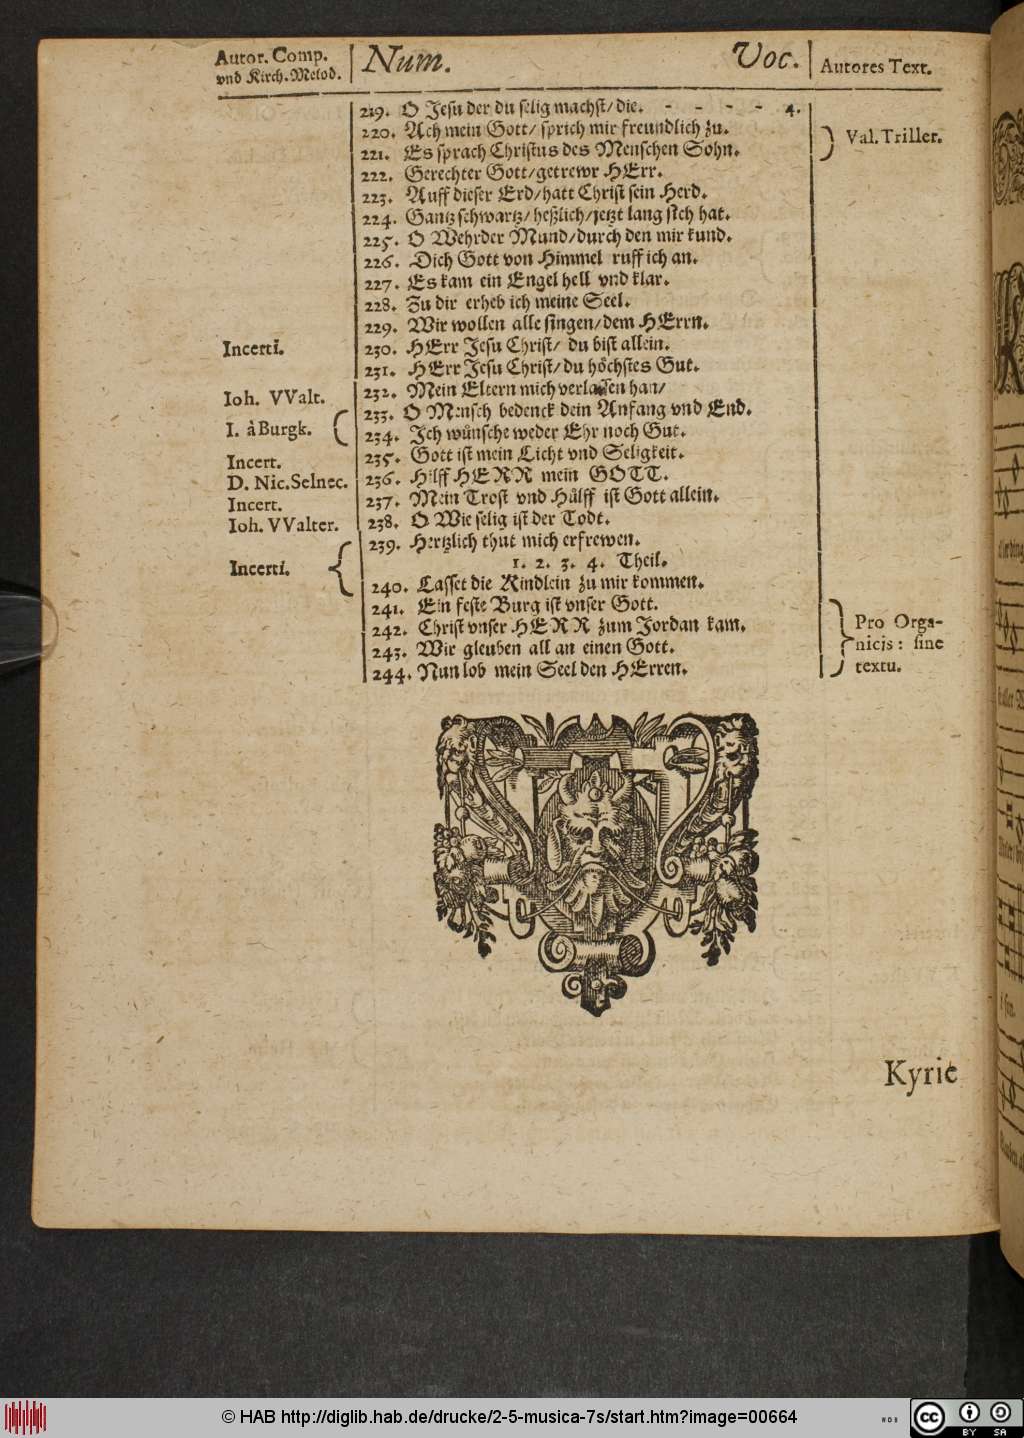 Autor. Comp. Num. Voc. Autores Text.
vnd Kirch-Melod.
219. O Jesu der du selig machst/ die. - - - - 4.
220. Ach mein Gott/ sprich mir freundlich zu.
221. Es sprach Christus des Menschen Sohn. Val. Triller.
222. Gerechter Gott/getrewr HErr.
223. Auff dieser Erd/hatt Christ sein Herd.
224. Gantz schwartz/heßlich/jetzt lang sich hat.
225. O Wehrder Mund/durch den mir kund.
226. Dich Gott von Himmel ruff ich an.
227. Es kam ein Engel hell vnd klar.
228. Zu dir erheb ich meine Seel.
229. Wir wollen alle singen/dem HErrn.
Incerti. 230. HErr Jesu Christ/ du bist allein.
231. HErr Jesu Christ/du höchstes Gut.
Ioh. VValt. 232. Mein Eltern mich verlassen han/
233. O Mensch bedenck dein Anfang vnd End.
I. à Burgk. 234. Ich wünsche weder Ehr noch Gut.
Incert. 235. Gott ist mein Licht vnd Seligkeit.
D. Nic. Selnec. 236. Hilff HERR mein GOTT.
Incert. 237. Mein Trost vnd Hülff ist Gott allein.
Ioh. VValter. 238. O Wie selig ist der Todt.
239. Hertzlich thut mich erfrewen.
Incerti. 1. 2. 3. 4. Theil.
240. Lasset die Kindlein zu mir kommen.
241. Ein feste Burg ist vnser Gott.
242. Christ vnser HERR zum Jordan kam. Pro Orga-
243. Wir gleuben all an einen Gott. nicis: sine
244. Nun lob mein Seel den HErren. textu.
Kyrie
© HAB http://diglib.hab.de/drucke/2-5-musica-7s/start.htm?image=00664
cc BY SA